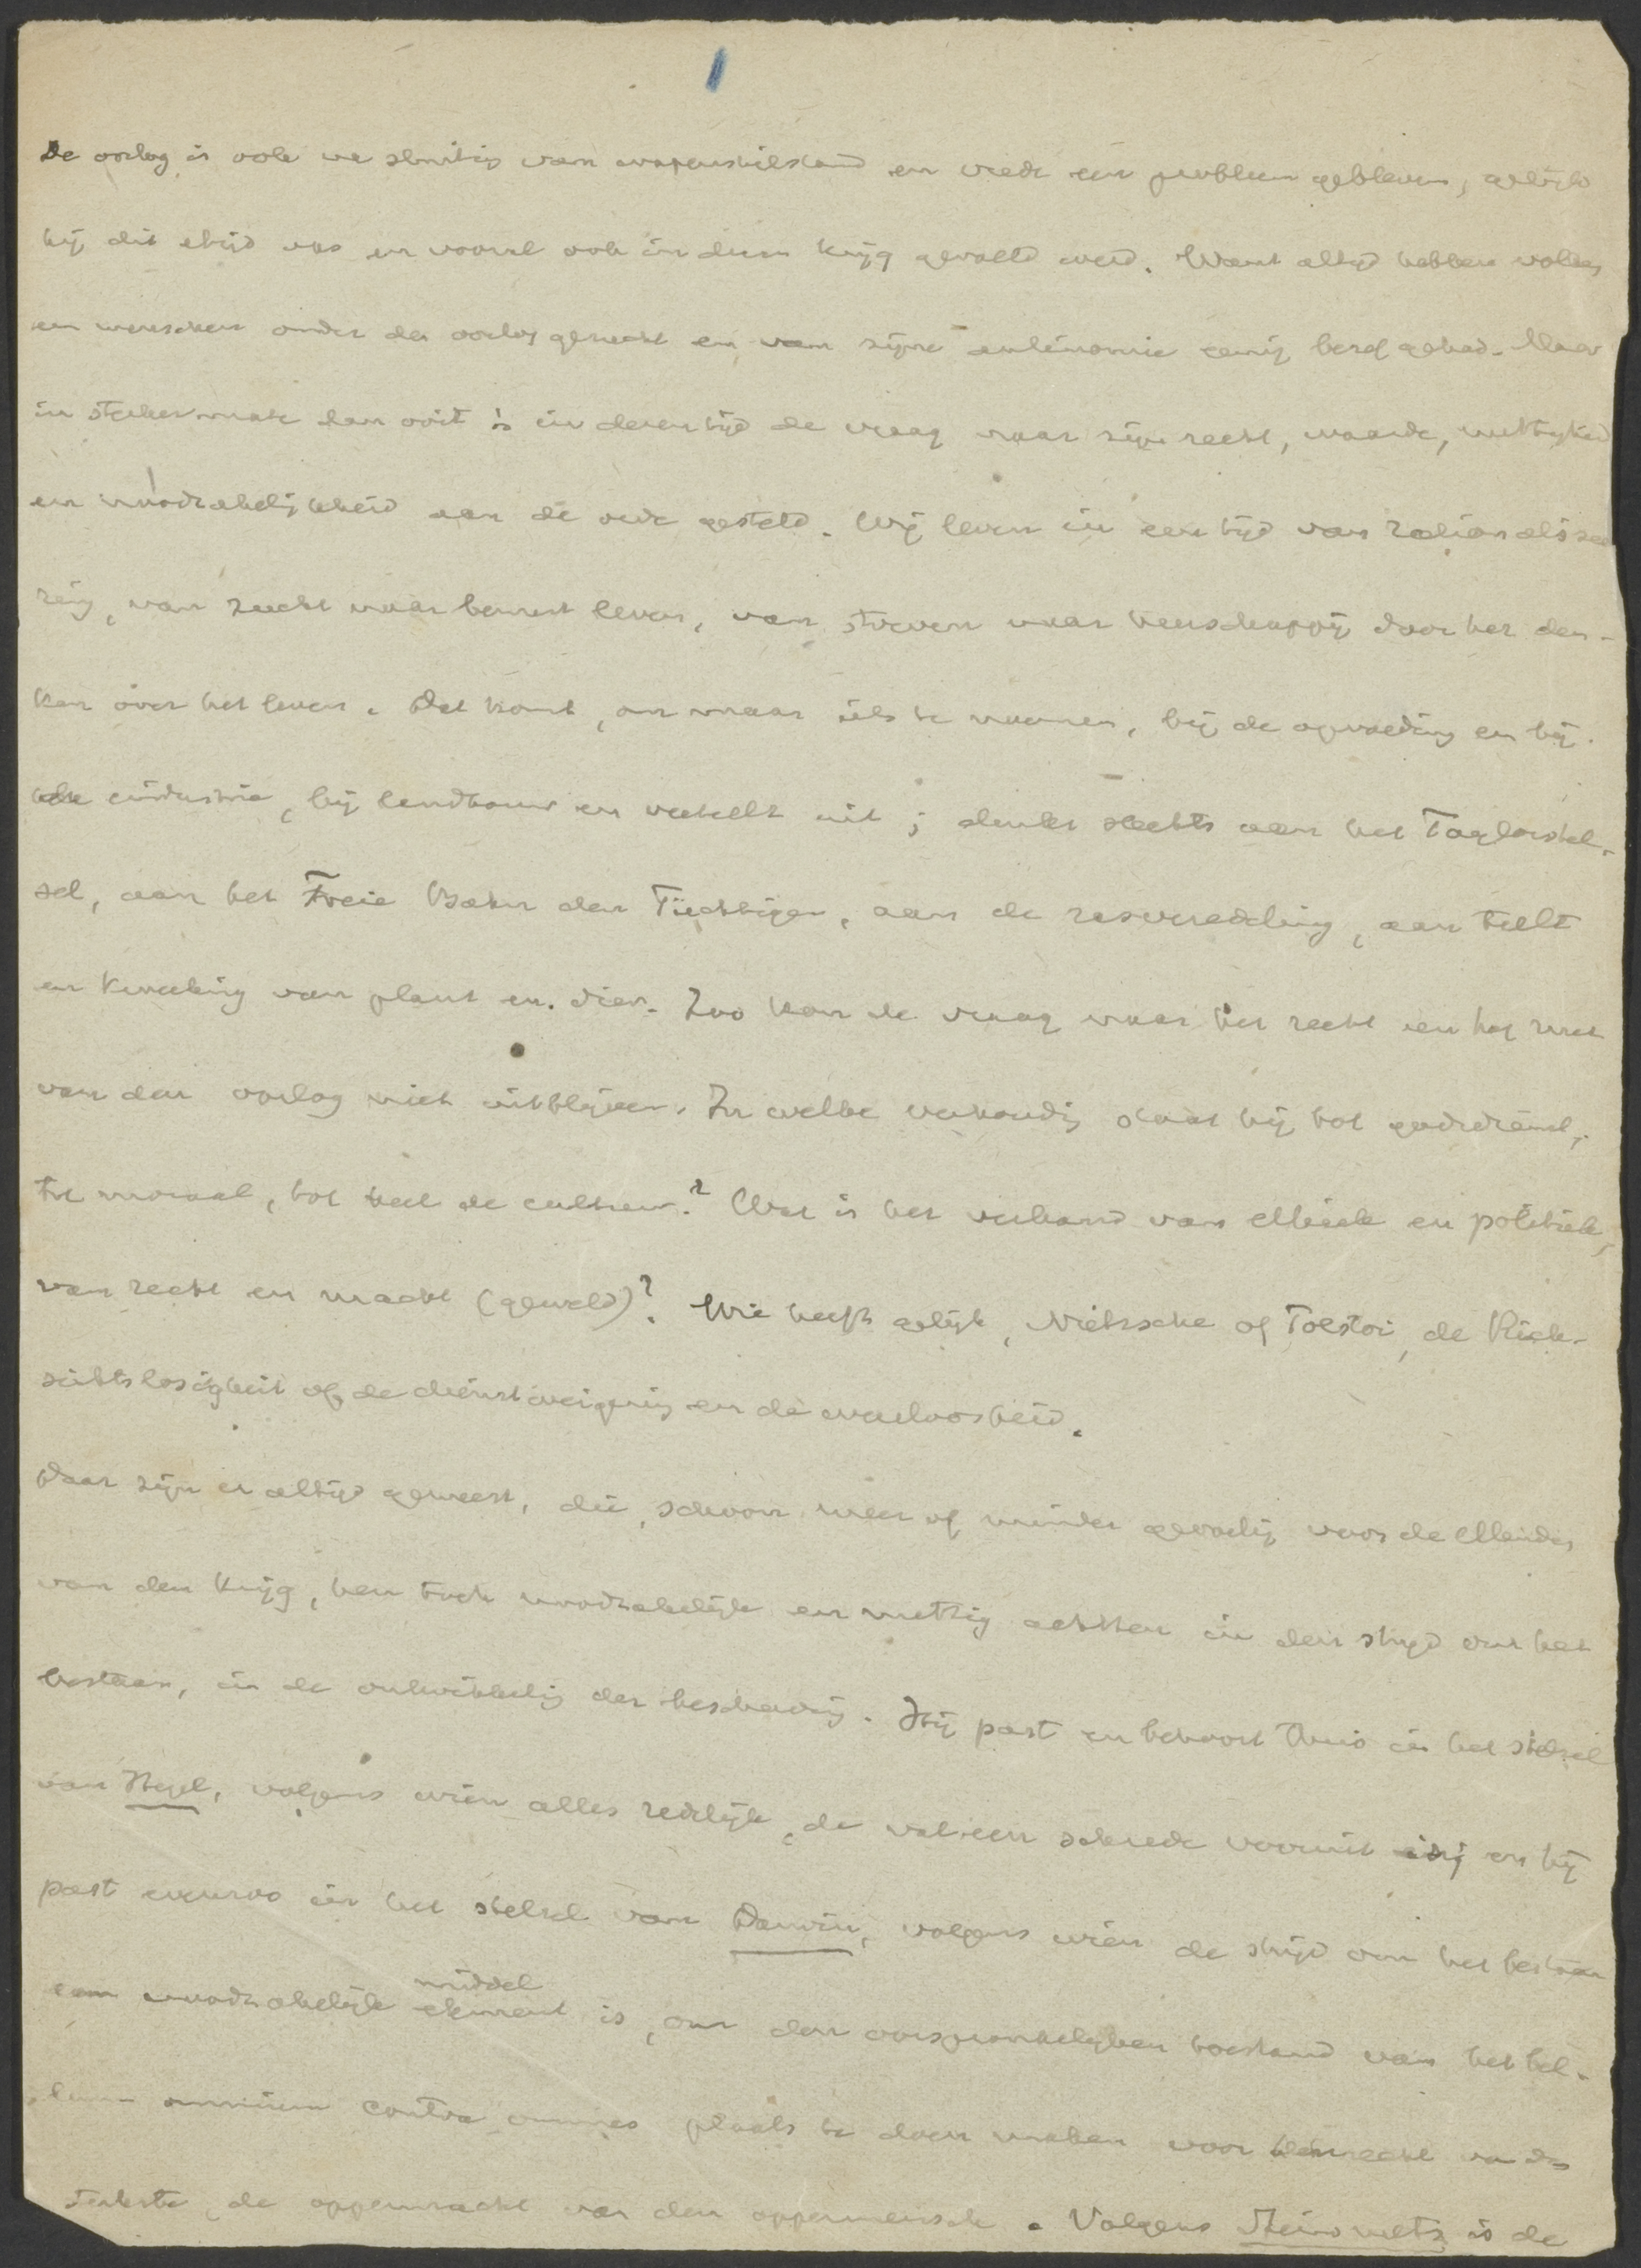 De oorlog is ook na sluiting van wapenstilstand en vrede een probleem gebleven, gelijk
hij dit altijd was en vooral ook in dezen krijg gevoeld werd. Want altijd hebben volken
en menschen onder den oorlog gezucht en van zijne antinomie eenig besef gehad. Maar
in sterker mate dan ooit is in dezen tijd de vraag naar zijn recht, waarde, nuttigheid
en noodzakelijkheid aan de orde gesteld. Wij leven in een tijd van rationalisee
ring, van zucht naar bewust leven, van streven naar heerschappij door het den-
ken over het leven. Dat komt, om maar iets te noemen, bij de opvoeding en bij
de industrie, bij landbouw en veeteelt uit; denkt slechts aan het Taylorstel-
sel, aan het Freie Bahn den Tüchtigen, aan de rasveredeling, aan teelt
en kweeking van plant en dier. Zoo kan de vraag naar het recht en het nut
van den oorlog niet uitblijven. In welke verhouding staat hij tot godsdienst,
tot moraal, tot heel de cultuur? Wat is het verband van ethiek en politiek,
van recht en macht (geweld)? Wie heeft gelijk, Nietzsche of Tolstoi, de Rück-
sichtslosigkeit of de dienstweigering en de weerloosheid.
Daar zijn er altijd geweest, die, schoon meer of minder gevoelig voor de ellenden
van den krijg, hem toch noodzakelijk en nuttig achtten in den strijd om het
bestaan, in de ontwikkeling der beschaving. Hij past en behoort thuis in het stelsel
van Hegel, volgens wien alles redelijk, de schrede vooruit is, en hij
past evenzoo in het stelsel van Darwin, volgens wien de strijd om het bestaan
een noodzakelijk element middel is, om den oorspronkelijken toestand van het bel-
lum omnium contra omnes plaats te doen maken voor het recht van den
sterkste, de oppermacht van den oppermensch. Volgens Steinmetz is de